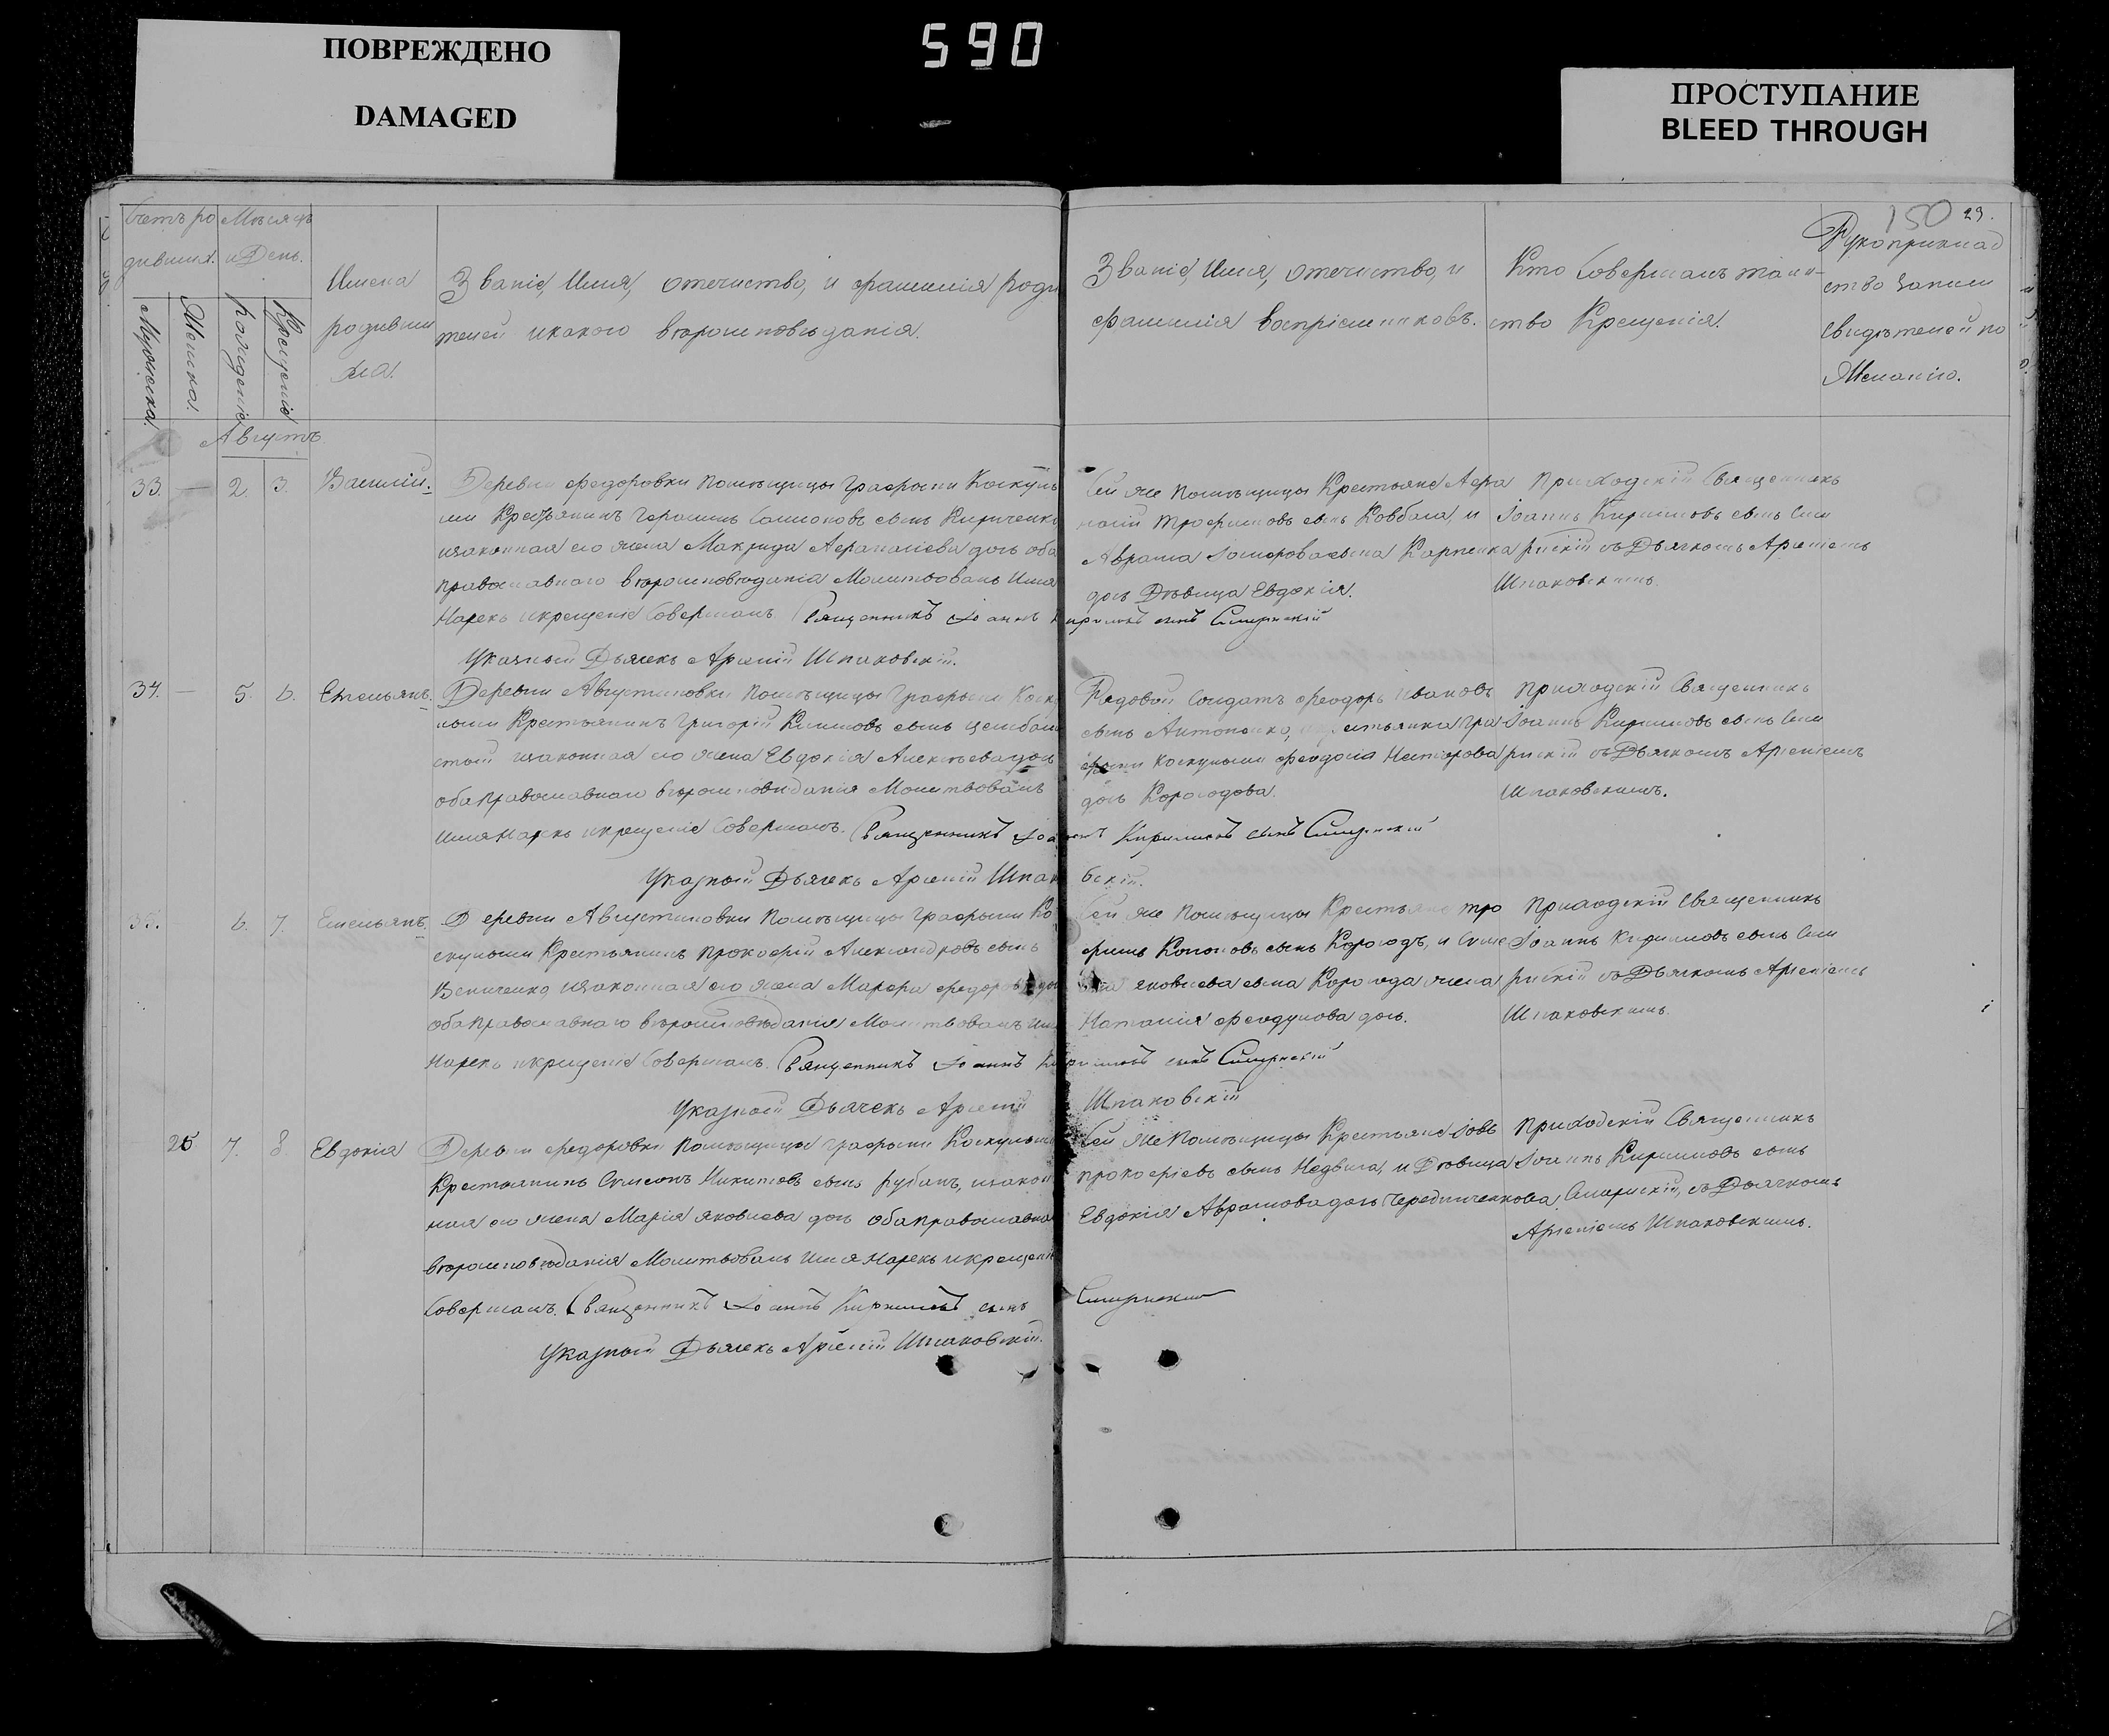 ПОВРЕЖДЕНО
DAMAGED
590
ПРОСТУПАНИЕ
BLEED THROUGH
150 29.
Счетъ родившихъ.
Мѣсяцъ и День.
Мужеска.
Женска.
Рожденіе
Крещеніе
Имена родившихся.
Званіе, Имя, отечиство, и фамилія родителей икакого вѣроисповѣданія.
Званіе, Имя, отечиство, и фамилія воспріемниковъ.
Кто Совершалъ таинство Крещенія.
Рукоприкладство записи Свидѣтелей по Желанію.
Августъ
33. — 2. 3. Василій.
Деревни Федоровки помѣщицы Графыни
Крестьянинъ Герасимъ сынъ Кириченко
изаконная его жена Макрида Афанасіева дочь оба
православного вѣроисповѣданія Молитвовалъ Имя
Нарекъ икрещеніе Совершалъ Священникъ Іоаннъ Кириловъ сынъ
Указный Дьячекъ Арсеній Шпаковскій.
Сей же помѣщицы Крестьяне
Трофимовъ сынъ Ковбаса, и
дочь Дѣвица Евдокія.
Приходскій Священникъ
Іоаннъ Кириловъ сынъ
съ Дьячкомъ Арсеніемъ
Шпаковскимъ.
34. — 5. 6. Емельянъ.
Деревни Августиновки помѣщицы Графыни
Крестьянинъ Григорій Климовъ сынъ
изаконная его жена Евдокія Алексѣева дочь
оба православнаго вѣроисповѣданія Молитвовалъ
имя Нарекъ икрещеніе Совершалъ. Священникъ Іоаннъ Кириловъ сынъ
Указный Дьячекъ Арсеній Шпаковскій.
Рядовой Солдатъ Феодоръ Ивановъ
сынъ Антоненко,
Феодосія Нестерова
дочь Корогодова.
Приходскій Священникъ
Іоаннъ Кириловъ сынъ
съ Дьячкомъ Арсеніемъ
Шпаковскимъ.
35. 6. 7. Емельянъ.
Деревни Августиновки помѣщицы Графыни
Крестьянинъ Прокофій Александровъ сынъ
изаконная его жена Марфа
оба православнаго вѣроисповѣданія Молитвовалъ имя
Нарекъ икрещеніе Совершалъ. Священникъ Іоаннъ Кириловъ сынъ
Указный Дьячекъ Арсеній Шпаковскій
Сей же помѣщицы Крестьяне Трофимъ Кононовъ сынъ Корогодъ, и
Яковлева сына Корогода жена
Наталія Феодулова дочь.
Приходскій Священникъ
Іоаннъ Кириловъ сынъ
съ Дьячкомъ Арсеніемъ
Шпаковскимъ.
25 7. 8 Евдокія
Деревни Федоровки помѣщицы Графыни
Крестьянинъ Симеонъ Никитовъ сынъ Рубанъ, изаконная его жена Марія Яковлева дочь оба православнаго
вѣроисповѣданія Молитвовалъ имя Нарекъ икрещеніе
Совершалъ. Священникъ Іоаннъ Кириловъ сынъ
Указный Дьячекъ Арсеній Шпаковскій.
Сей же помѣщицы Крестьяне Іовъ
Прокофіевъ сынъ Недвига, и Дѣвица
Евдокія Аврамова дочь Чередниченкова.
Приходскій Священникъ
Іоаннъ Кириловъ сынъ
съ Дьячкомъ
Арсеніемъ Шпаковскимъ.